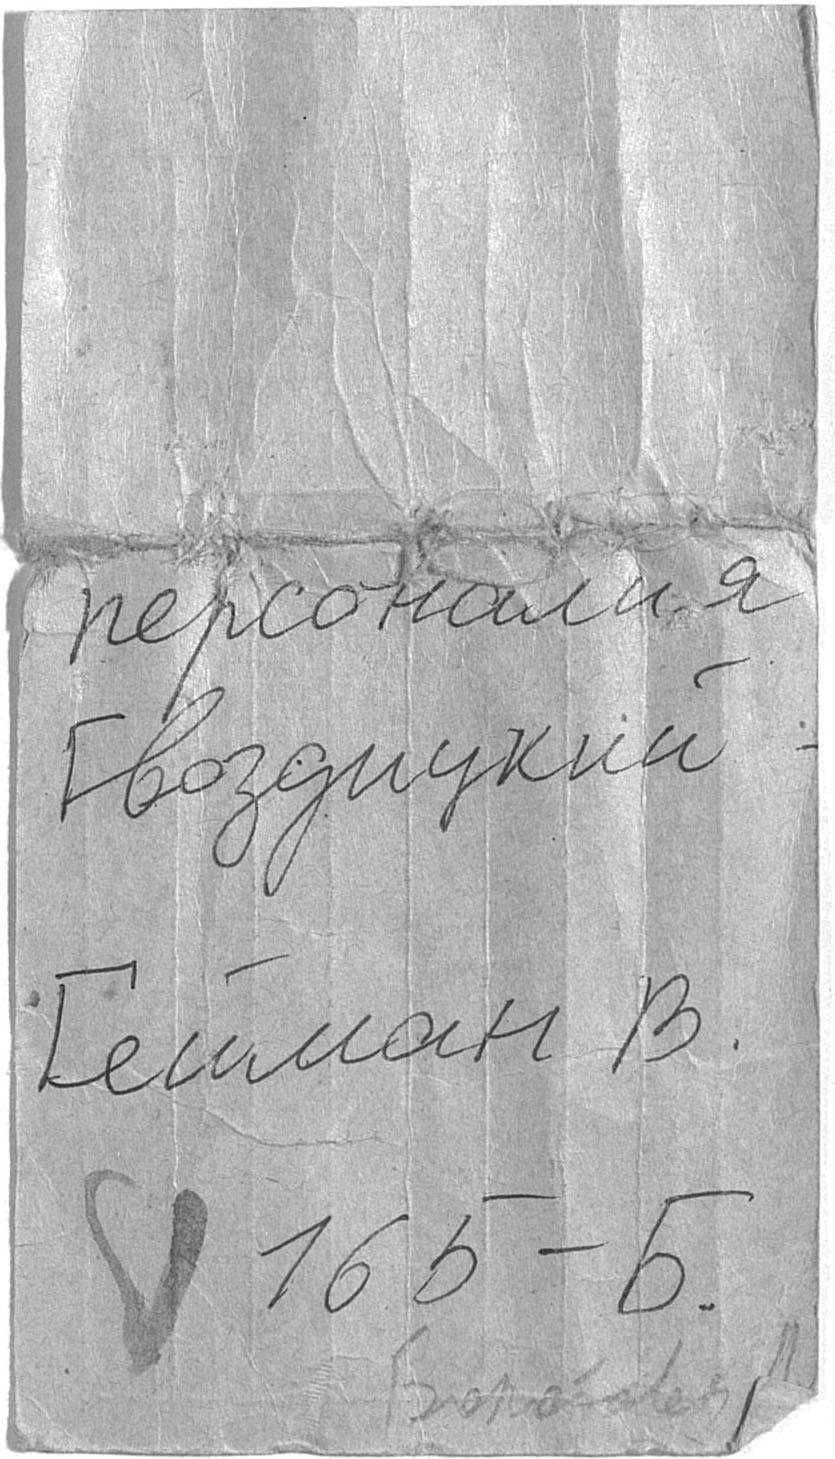 персоналия
Гвоздицкий -
Гейман В.
V 165-Б.